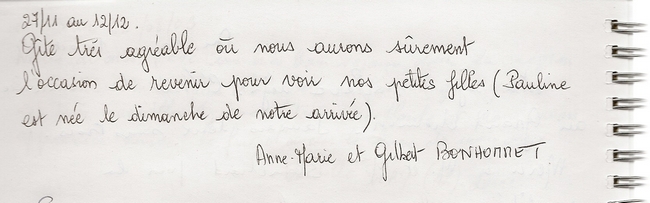 27/11 au 12/12.
Gîte très agréable où nous aurons sûrement
l'occation de revenir pour voir nos petites filles (Pauline
est née le dimanche de notre arrivée).
Anne-Marie et Gilbert BONHOMMET.